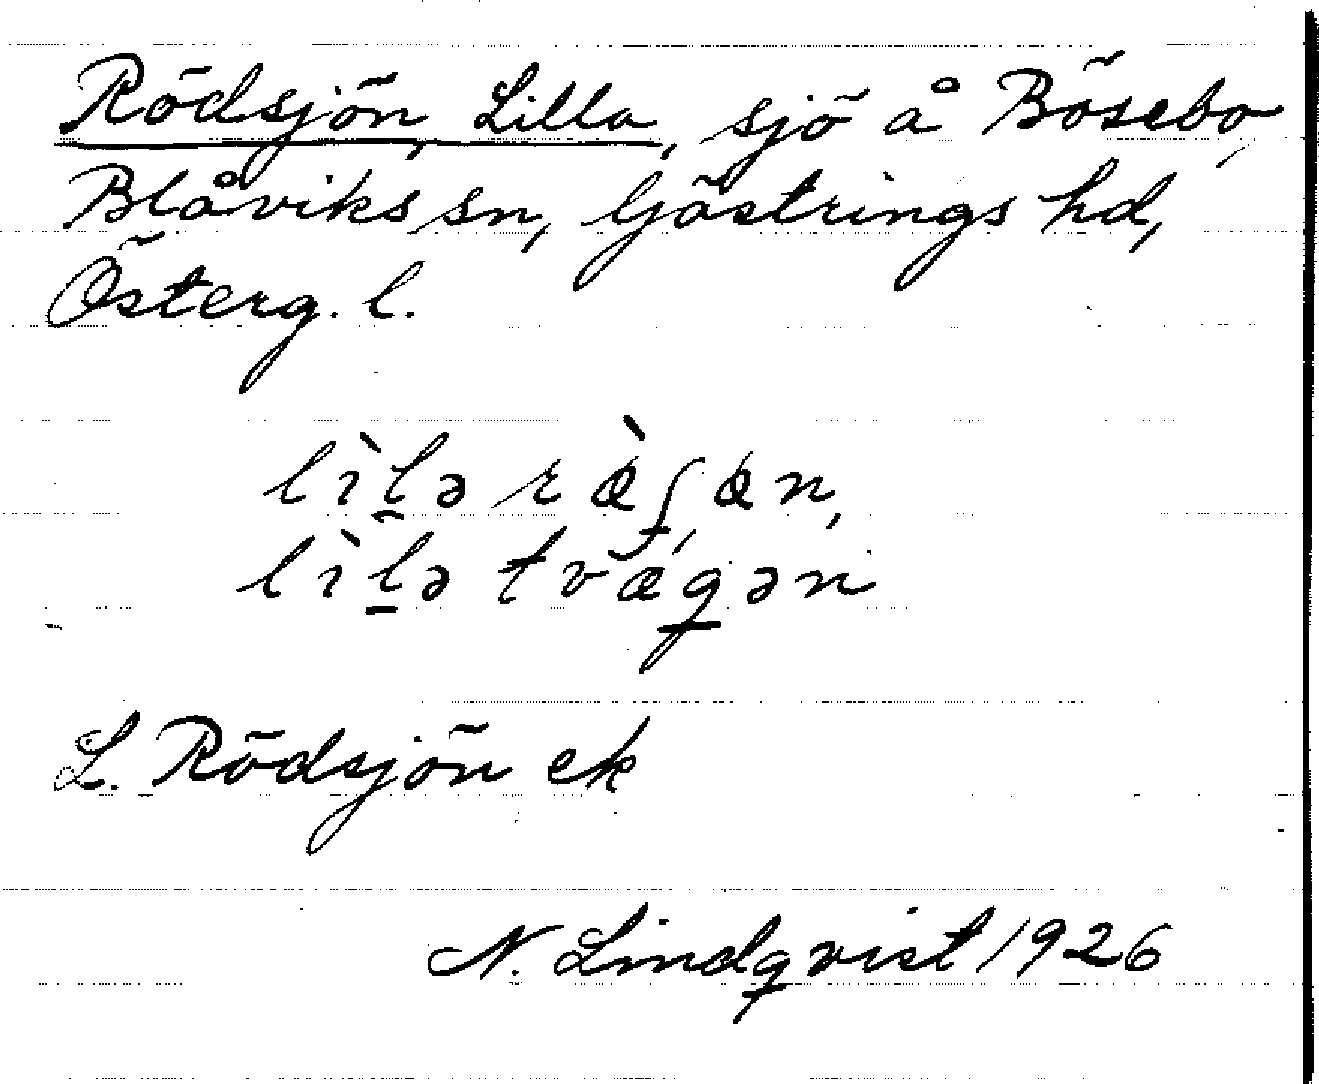 Rödsjön, Lilla, sjö å Bösebo,
Blåviks sn, Göstrings hd,
Österg. l.
lìlə ræ̀ʃæn,
lìlə tvǽgən
L. Rödsjön ek
N. Lindqvist 1926